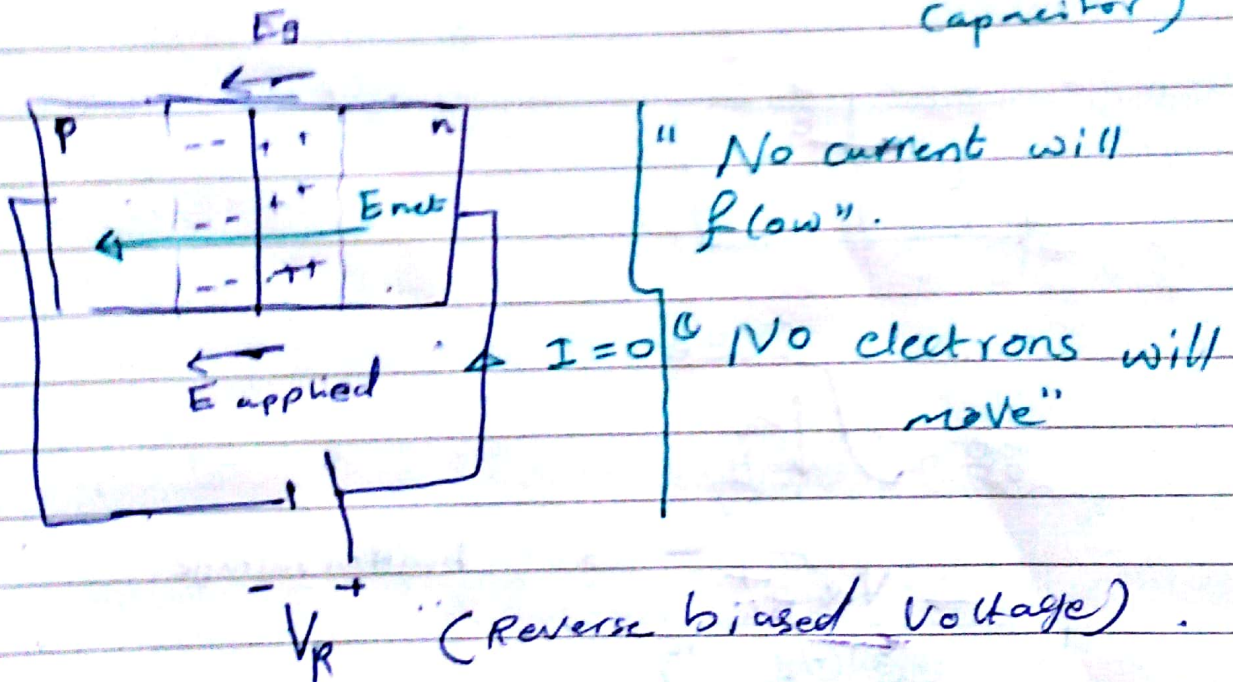 Capacitor)
EB
p
n
-- ++
-- ++
E net
-- ++
E applied
I = 0
" No current will
flow".
" No electrons will
move"
- +
VR (Reverse biased voltage).